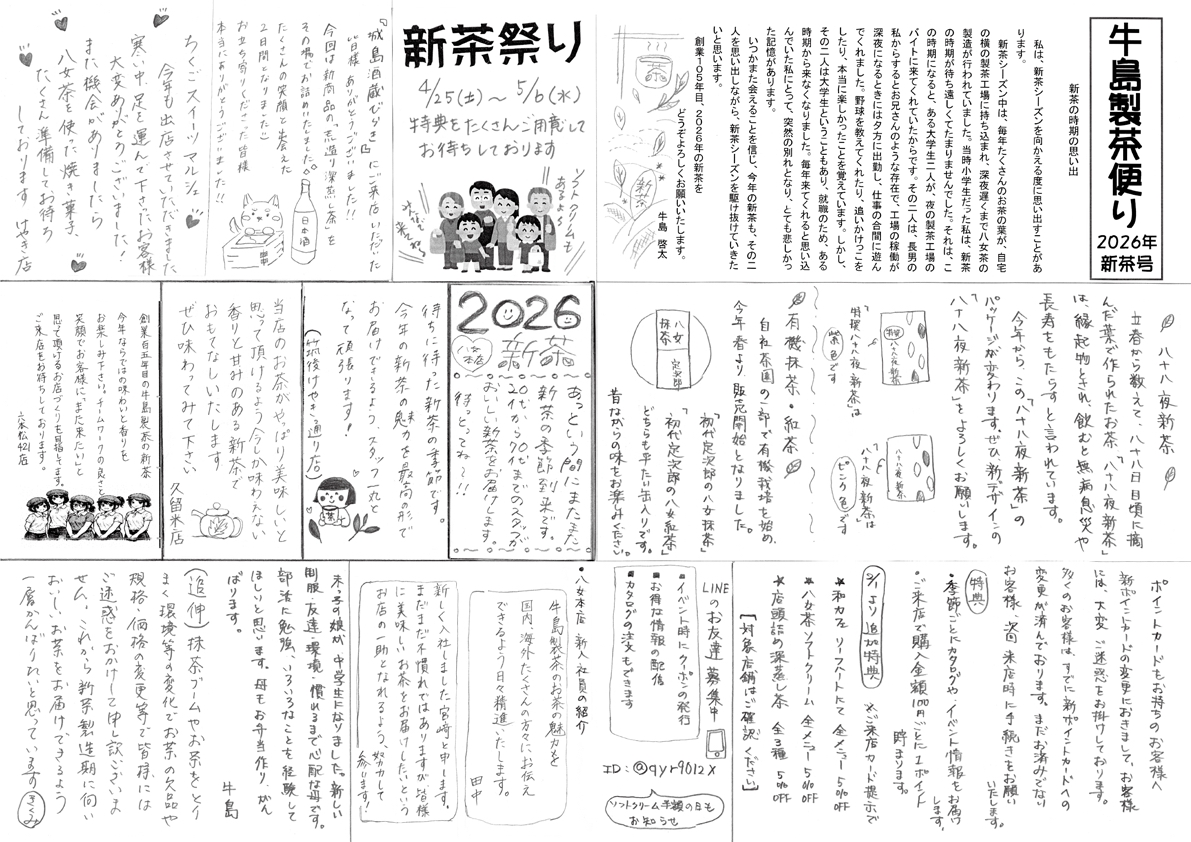 牛島製茶便り
2026年
新茶号
新茶の時期の思い出
私は、新茶シーズンを向かえる度に思い出すことがあ
ります。
新茶シーズン中は、毎年たくさんのお茶の葉が、自宅
の横の製茶工場に持ち込まれ、深夜遅くまで八女茶の
製造が行われていました。当時小学生だった私は、新茶
の時期が待ち遠しくてたまりませんでした。それは、こ
の時期になると、ある大学生二人が、夜の製茶工場の
バイトに来てくれていたからです。その二人は、長男の
私からするとお兄さんのような存在で、工場の稼働が
深夜になるときには夕方に出勤し、仕事の合間に遊ん
でくれました。野球を教えてくれたり、追いかけっこを
したり、本当に楽しかったことを覚えています。しかし、
その二人は大学生ということもあり、就職のため、ある
時期から来なくなりました。毎年来てくれると思い込
んでいた私にとって、突然の別れとなり、とても悲しかっ
た記憶があります。
いつかまた会えることを信じ、今年の新茶も、その二
人を思い出しながら、新茶シーズンを駆け抜けていきた
いと思います。
創業105年目、2026年の新茶を
どうぞよろしくお願いいたします。
牛島 啓太
新茶
新茶祭り
4/25(土)~5/6(水)
特典をたくさんご用意して
お待ちしております
ソフトクリームも
あるよ~
みんなで
来てね~
『城島酒蔵びらき』にご来店いただいた
皆様 ありがとうございました!!
今回は新商品の荒造り深蒸し茶を
その場でお詰めいたしました。
たくさんの笑顔と出会えた
2日間となりました♪
お立ち寄りくださった皆様
本当にありがとうございました!!
日本酒
ちくごスイーツマルシェ
今年も出店させていただきました
寒い中足を運んで下さったお客様
大変ありがとうございました!
また機会がありましたら
八女茶を使った焼き菓子、
たくさん準備してお待ち
しております はやき店
八十八夜新茶
立春から数えて、八十八日目頃に摘
んだ葉で作られたお茶「八十八夜新茶」
は、縁起物とされ、飲むと無病息災や
長寿をもたらすと言われています。
今年から、この「八十八夜新茶」の
パッケージが変わります。ぜひ、新デザインの
八十八夜新茶」をよろしくお願いします。
特撰
八十八夜新茶
「特撰八十八夜新茶」は
紫色です
八十八夜新茶
「八十八夜新茶」は
ピンク色です
有機抹茶・紅茶
自社茶園の一部で有機栽培を始め、
今年春より、販売開始となりました。
八女
抹茶
定次郎
「初代定次郎の八女抹茶」
「初代定次郎の八女紅茶」
どちらも平たい缶入りです。
昔ながらの味をお楽しみください。
2026
新茶
八女本店
あっという間にまたまた
新茶の季節到来です。
20代から70代までのスタッフが
おいしい新茶をお届けします。
待っとってね~!!
待ちに待った新茶の季節です。
今年の新茶の魅力を最高の形で
お届けできるよう、スタッフ一丸と
なって頑張ります!
(筑後けやき通り店)
茶
当店のお茶がやっぱり美味しいと
思って頂けるよう今しか味わえない
香りと甘みのある新茶で
おもてなしいたします
ぜひ味わってみて下さい
久留米店
創業百五年目の牛島製茶の新茶
今年ならではの味わいと香りを
お楽しみ下さい。チームワークの良さと
笑顔でお客様に、また来たいと
思って頂けるお店づくりを目指してます。
ご来店をお待ちしております。
六本松421店
ポイントカードをお持ちのお客様へ
新ポイントカードの変更におきまして、お客様
には、大変ご迷惑をお掛けしております。
多くのお客様は、すでに新ポイントカードへの
変更が済んでおります。まだお済みでない
お客様、次回来店時に手続きをお願い
いたします。
特典
・季節ごとにカタログや、イベント情報をお届け
します。
・ご来店で購入金額100円ごとに1ポイント
貯まります。
5/1より追加特典
※ご来店カード提示で
★和カフェ リースペートにて 全メニュー 5%OFF
★八女茶ソフトクリーム 全メニュー 5%OFF
★店頭詰め深蒸し茶 全3種 5%OFF
[対象店舗はご確認ください]
LINEのお友達募集中
・イベント時にクーポンの発行
・お得な情報の配信
・カタログの注文もできます
ID:@qyr9012x
ソフトクリーム半額の日も
お知らせ
・八女本店 新入社員の紹介
牛島製茶のお茶の魅力を
国内、海外たくさんの方々にお伝え
できるよう日々精進いたします。
田中
新しく入社しました宮崎と申します。
まだまだ不慣れではありますが皆様
に美味しいお茶をお届けしたいという
お店の一助となれるよう、努力して
参ります!
末っ子の娘が、中学生になりました。新しい
制服・友達・環境・慣れるまで心配な母です。
部活に勉強、いろいろなことを経験して
ほしいと思います。母もお弁当作り、がん
ばります。
牛島
(追伸)抹茶ブームやお茶をとり
まく環境等の変化でお茶の欠品や
規格・価格の変更等で皆様には
ご迷惑をおかけして申し訳ございま
せん。これから新茶製造期に向い
おいしいお茶をお届けできるよう
一層がんばりたいと思っています
きくみ